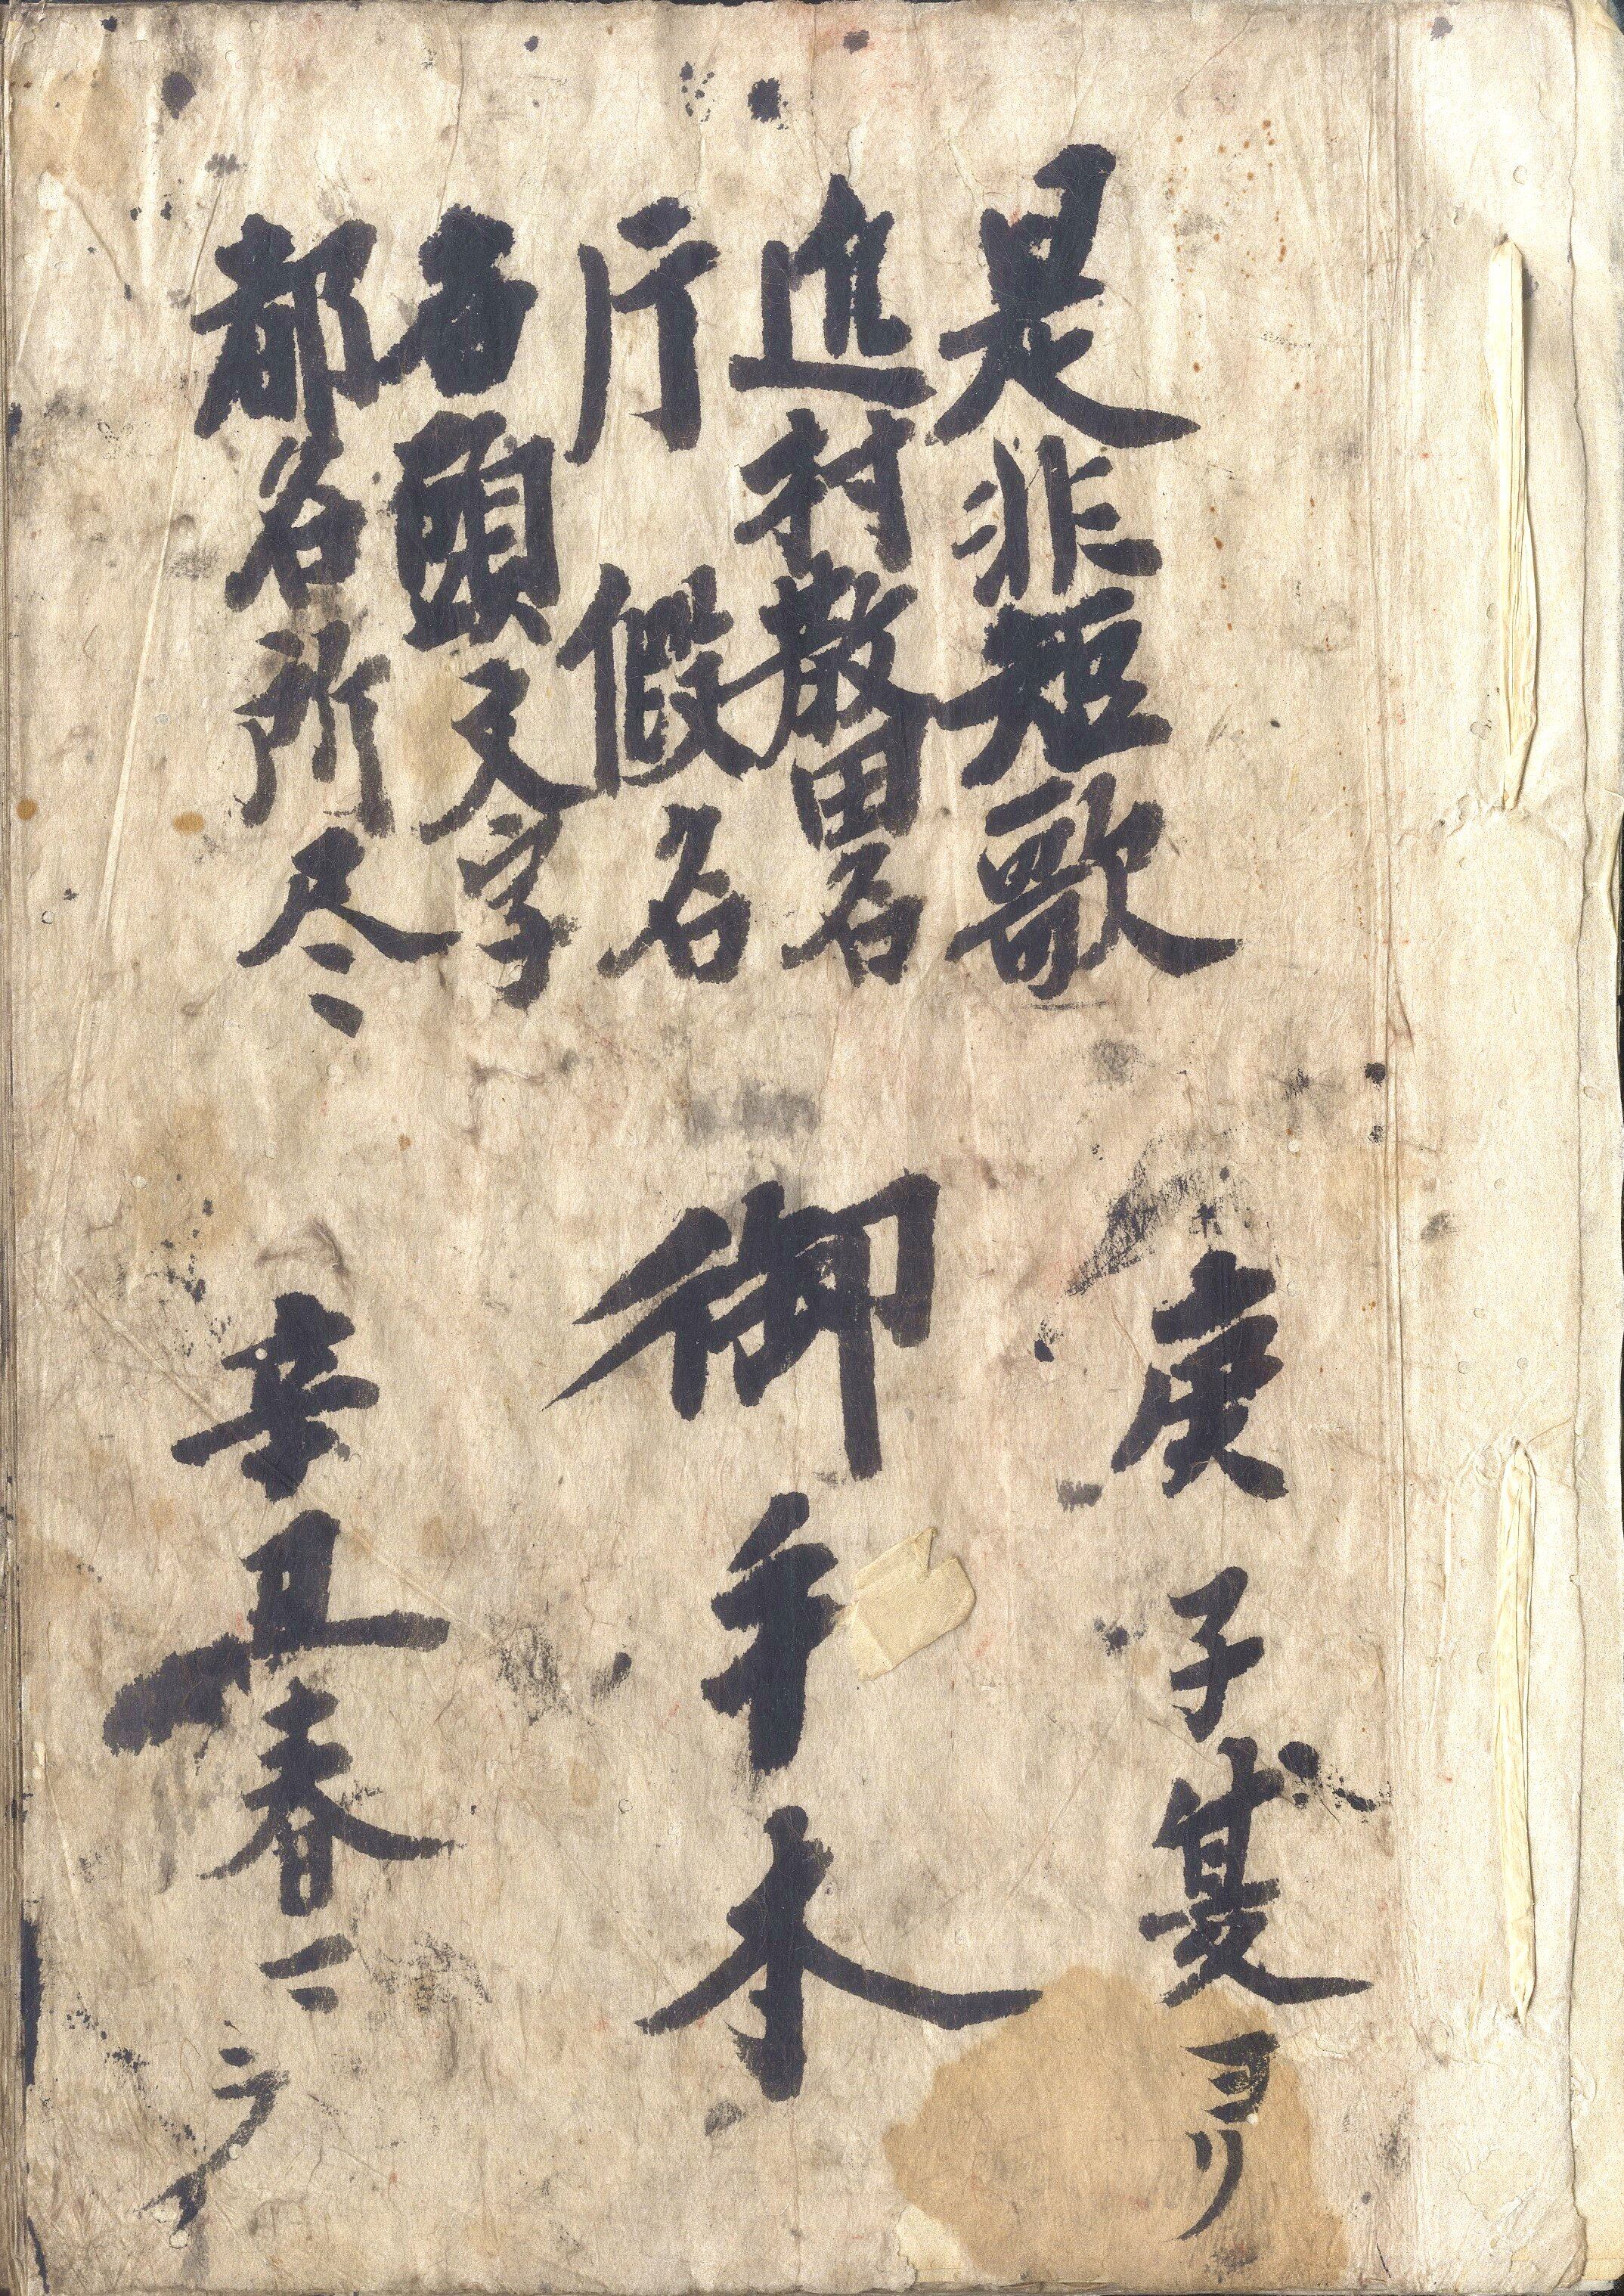 是非短歌
近村散田名
片假名
名頭文字
都名所尽
庚子夏ヨリ
御手本
辛丑春ニ